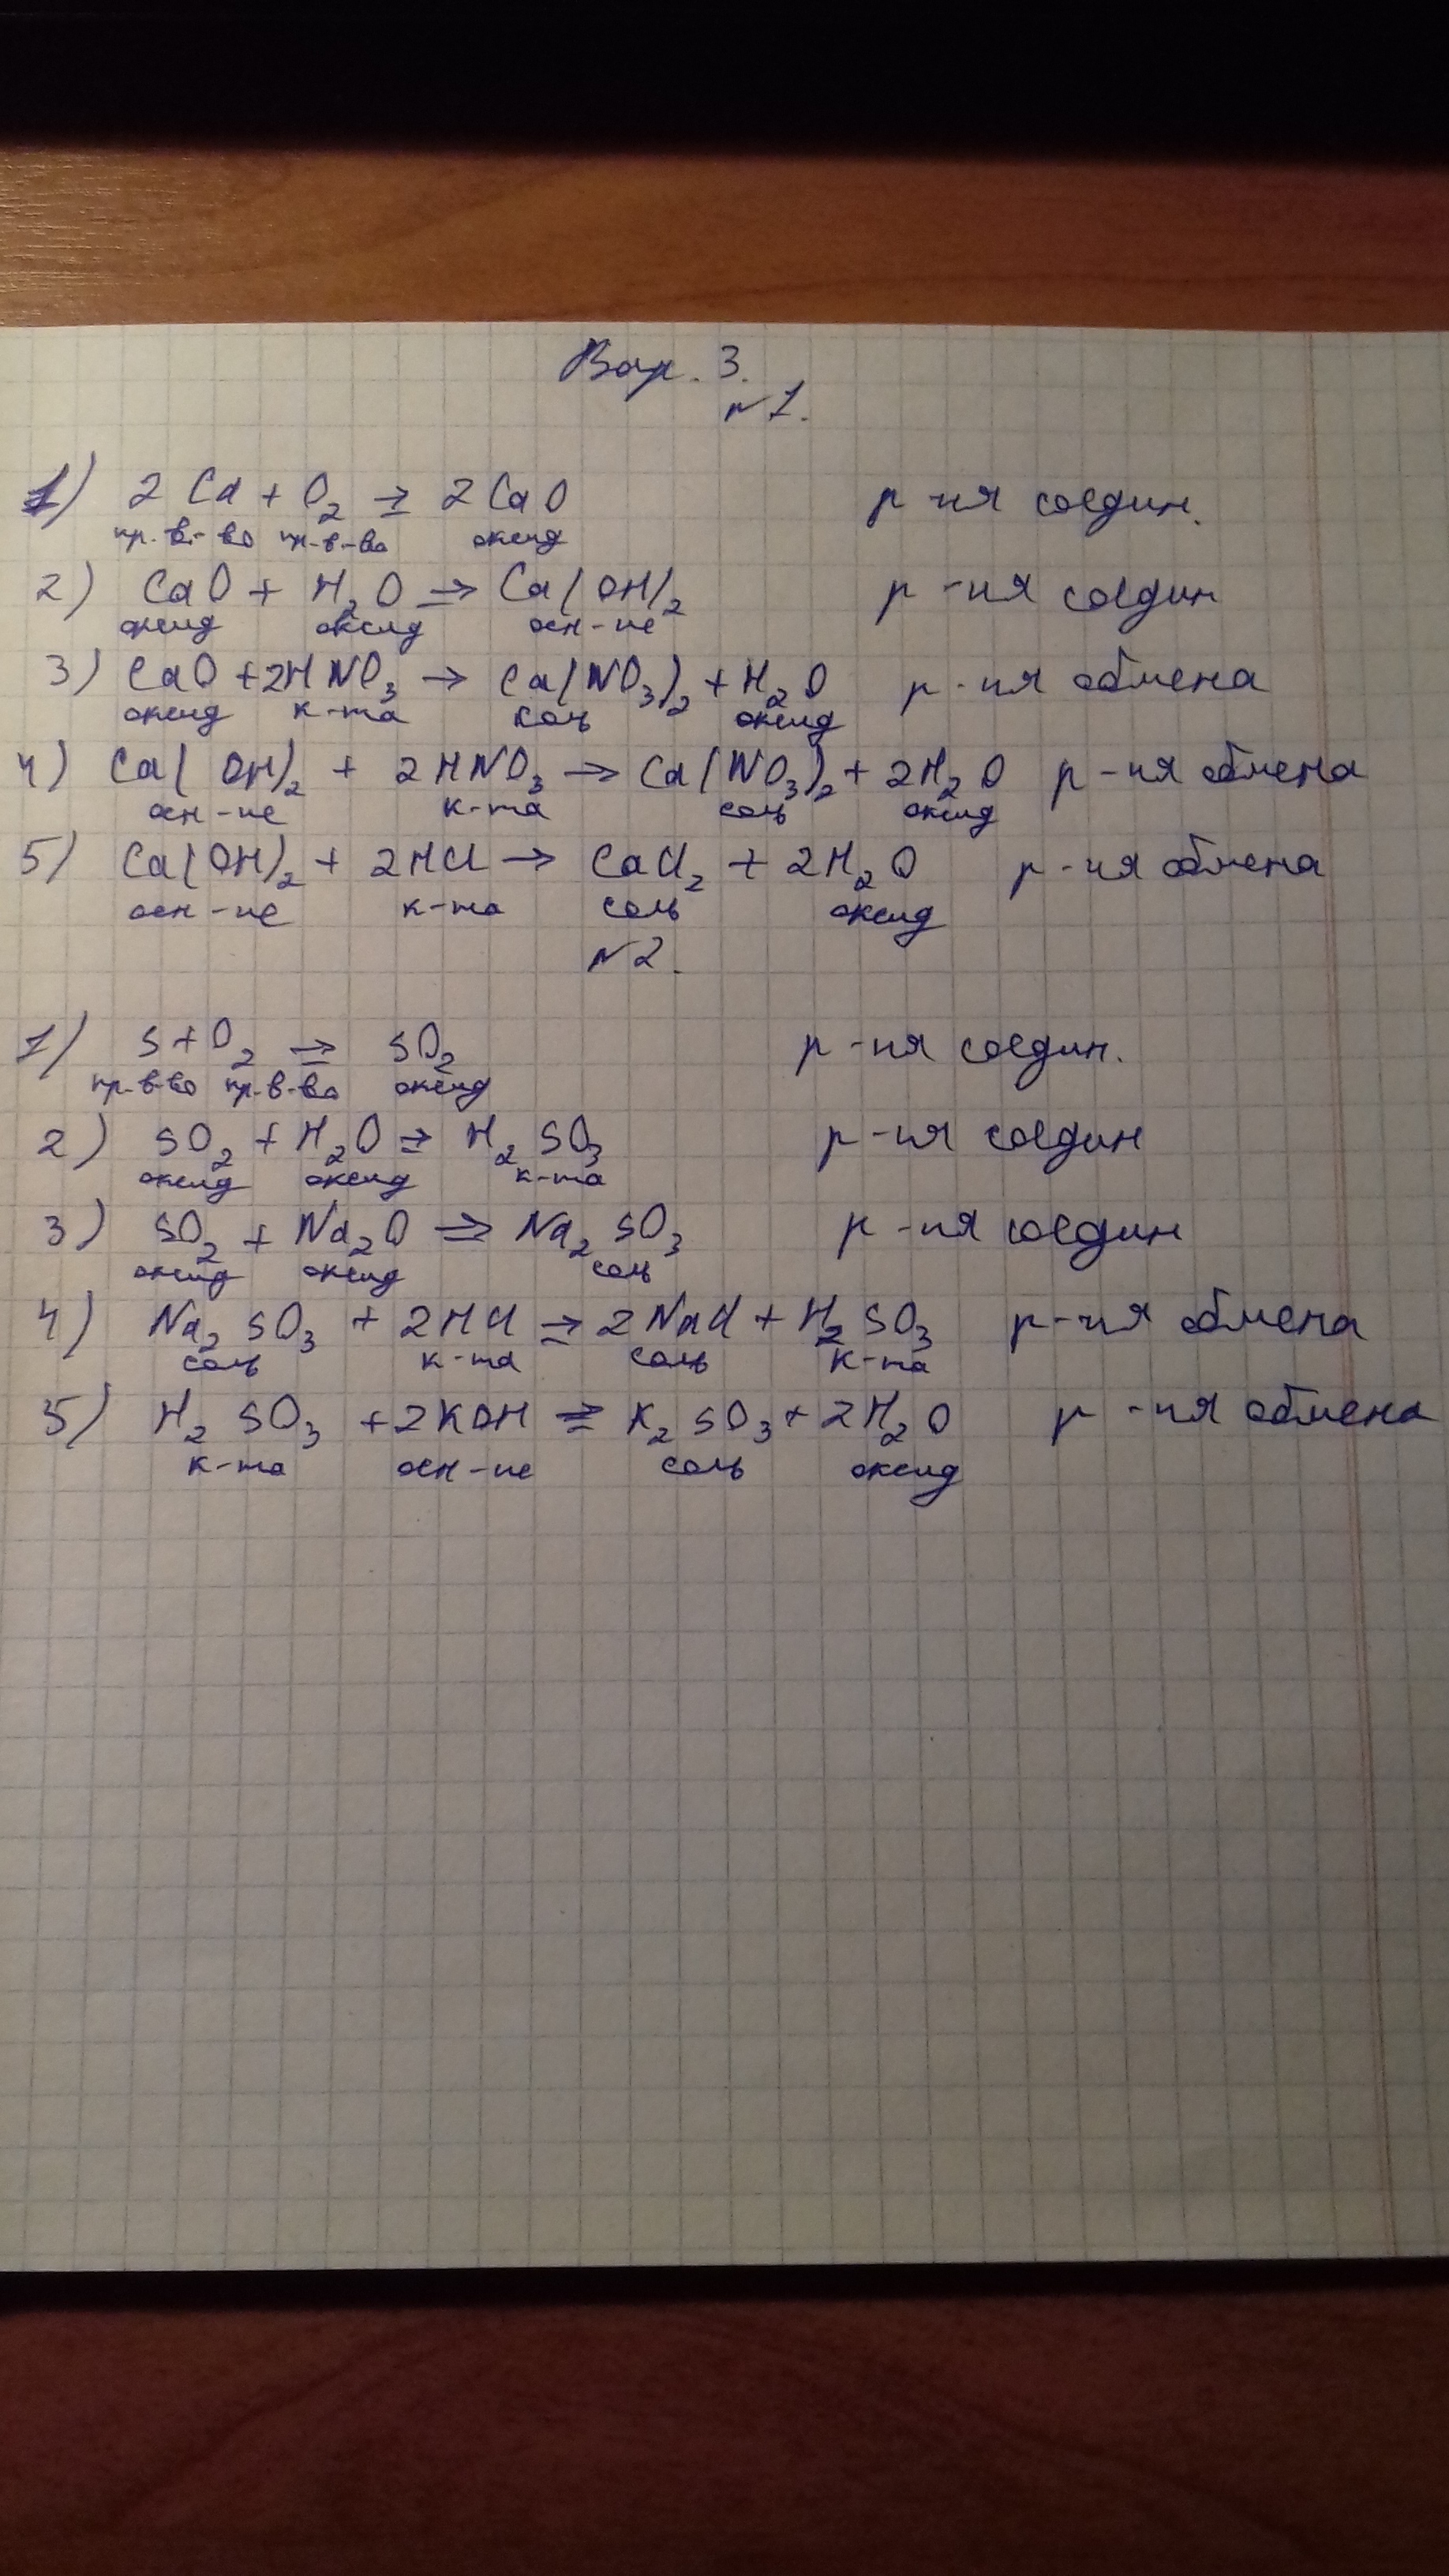 Вар. 3.
№1.
1) 2Ca + O₂ → 2CaO р-ия соедин.
пр. в-во пр-в-во оксид
2) CaO + H₂O → Ca(OH)₂ р-ия соедин
оксид оксид осн-ие
3) CaO + 2HNO₃ → Ca(NO₃)₂ + H₂O р-ия обмена
оксид к-та соль оксид
4) Ca(OH)₂ + 2HNO₃ → Ca(NO₃)₂ + 2H₂O р-ия обмена
осн-ие к-та соль оксид
5) Ca(OH)₂ + 2HCl → CaCl₂ + 2H₂O р-ия обмена
осн-ие к-та соль оксид
№2.
1) S + O₂ → SO₂ р-ия соедин.
пр-в-во пр-в-во оксид
2) SO₂ + H₂O → H₂SO₃ р-ия соедин
оксид оксид к-та
3) SO₂ + Na₂O → Na₂SO₃ р-ия соедин
оксид оксид соль
4) Na₂SO₃ + 2HCl → 2NaCl + H₂SO₃ р-ия обмена
соль к-та соль к-та
5) H₂SO₃ + 2KOH → K₂SO₃ + 2H₂O р-ия обмена
к-та осн-ие соль оксид